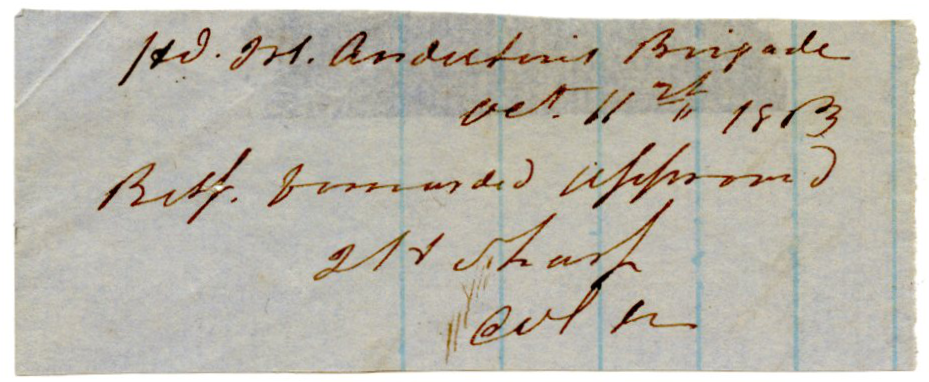 Hd. Qrs. Anderson's Brigade
Oct. 11th 1863
Resf. forwarded approved
J H Sharp
Col